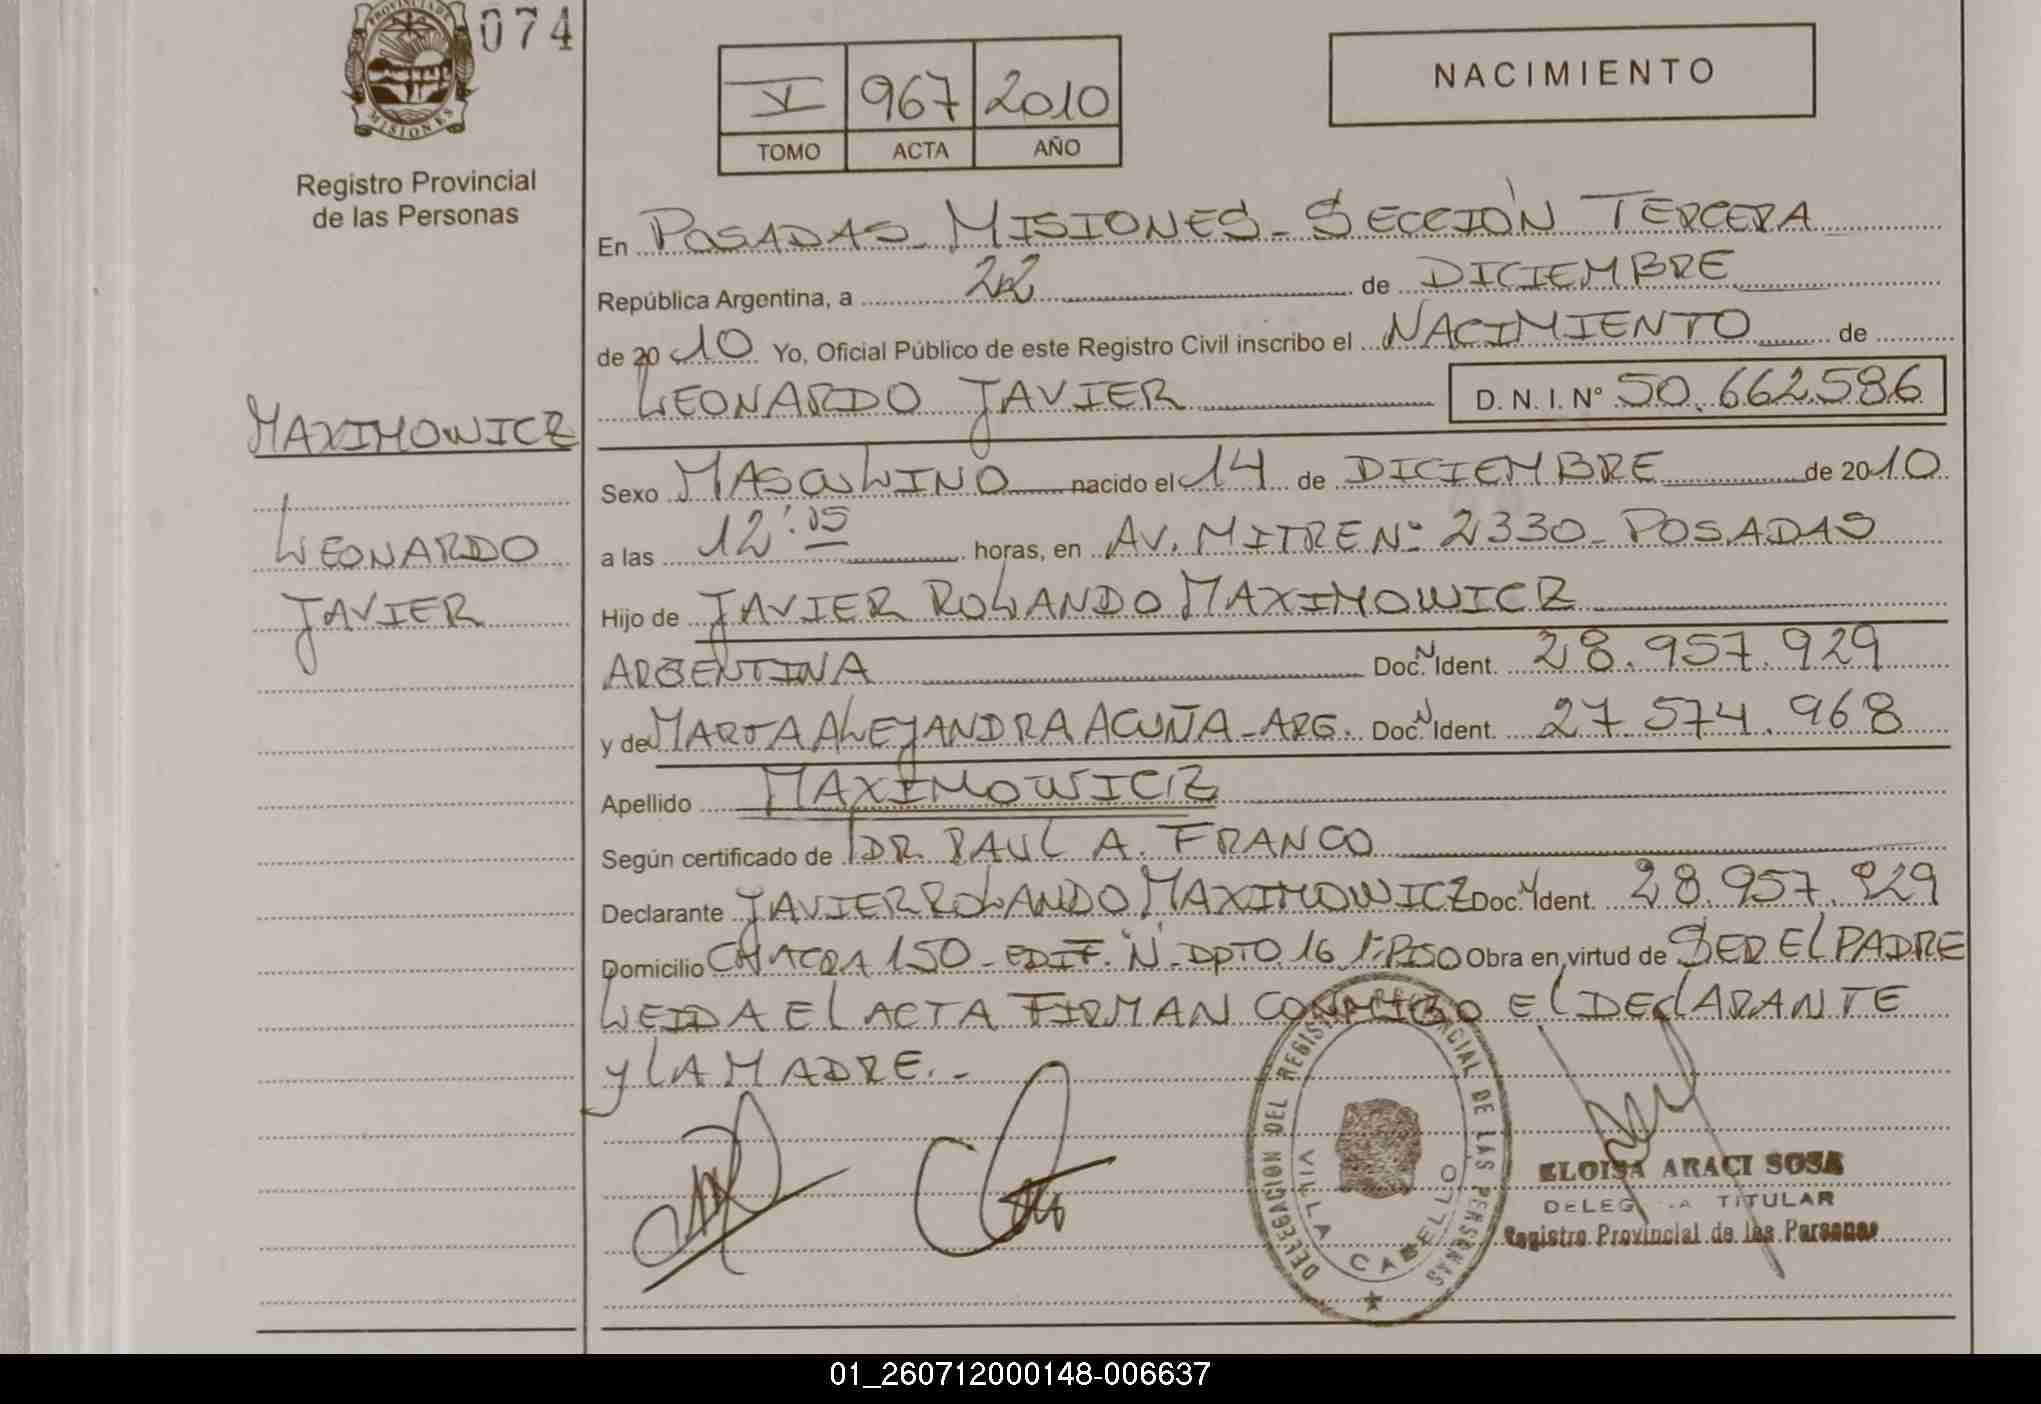 PROVINCIA DE
MISIONES
074
Registro Provincial
de las Personas
V 967 2010
TOMO ACTA AÑO
NACIMIENTO
En POSADAS MISIONES - SECCIÓN TERCERA
República Argentina, a 22 de DICIEMBRE
de 20 10 Yo, Oficial Público de este Registro Civil inscribo el NACIMIENTO de
LEONARDO JAVIER D. N. I. N° 50.662.586
MAXIMOWICZ
LEONARDO
JAVIER
Sexo MASCULINO nacido el 14 de DICIEMBRE de 20 10
a las 12:05 horas, en AV. MITRE N° 2330 - POSADAS
Hijo de JAVIER ROLANDO MAXIMOWICZ
ARGENTINA Doc. N Ident. 28.957.929
y de MARTA ALEJANDRA ACUÑA - ARG. Doc. N Ident. 27.574.968
Apellido MAXIMOWICZ
Según certificado de DR. RAUL A. FRANCO
Declarante JAVIER ROLANDO MAXIMOWICZ Doc. N Ident. 28.957.929
Domicilio CHACRA 150 - EDIF. "N" - DPTO. 16 1° PISO Obra en virtud de SER EL PADRE
LEIDA EL ACTA FIRMAN CONMIGO EL DECLARANTE
Y LA MADRE. -
DELEGACION DEL REGISTRO PROVINCIAL DE LAS PERSONAS
VILLA CABELLO
ELOISA ARACI SOSA
TITULAR
Registro Provincial de las Personas
01_260712000148-006637